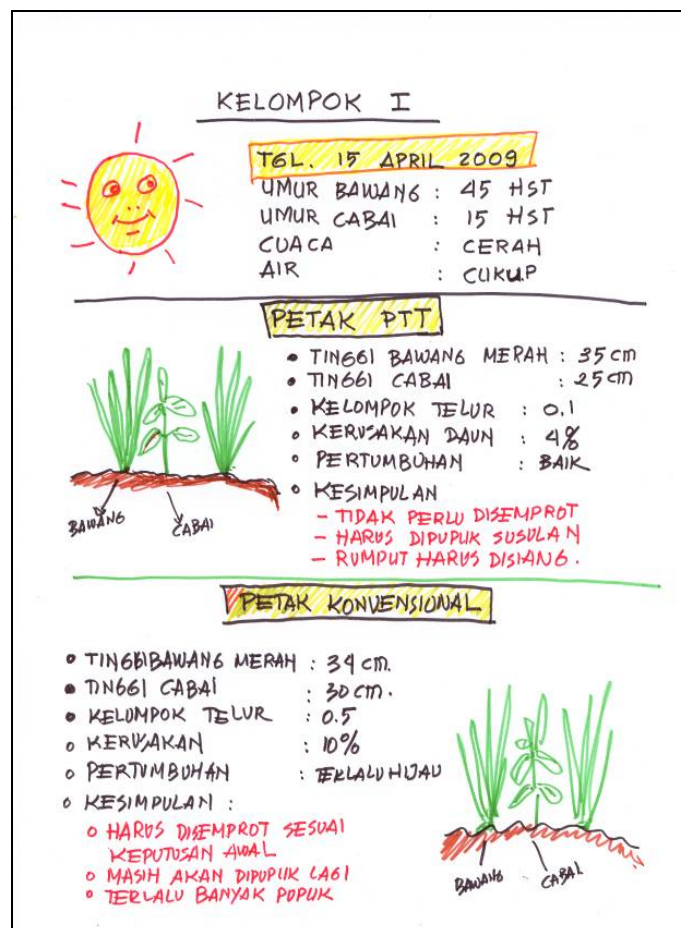 KELOMPOK I
TGL. 15 APRIL 2009
UMUR BAWANG : 45 HST
UMUR CABAI : 15 HST
CUACA : CERAH
AIR : CUKUP
PETAK PTT
• TINGGI BAWANG MERAH : 35 cm
• TINGGI CABAI : 25 cm
• KELOMPOK TELUR : 0.1
• KERUSAKAN DAUN : 4%
• PERTUMBUHAN : BAIK
• KESIMPULAN
- TIDAK PERLU DISEMPROT
- HARUS DIPUPUK SUSULAN
- RUMPUT HARUS DISIANG.
BAWANG CABAI
PETAK KONVENSIONAL
• TINGGI BAWANG MERAH : 34 cm.
• TINGGI CABAI : 30 cm.
• KELOMPOK TELUR : 0.5
• KERUSAKAN : 10%
• PERTUMBUHAN : TERLALU HIJAU
• KESIMPULAN :
• HARUS DISEMPROT SESUAI
KEPUTUSAN AWAL
• MASIH AKAN DIPUPUK LAGI
• TERLALU BANYAK POPUK
BAWANG CABAI